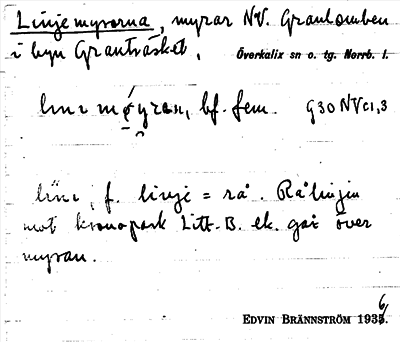 Linjemyrorna, myrar NV. Granlomben
i byn Granträsket. Överkalix sn o. tg. Norrb. l.
bf. fem. G30NVc1,3
f. linje = rå. Rålinjen
mot kronopark Litt. B. ek. går över
myran.
EDVIN BRÄNNSTRÖM 1936